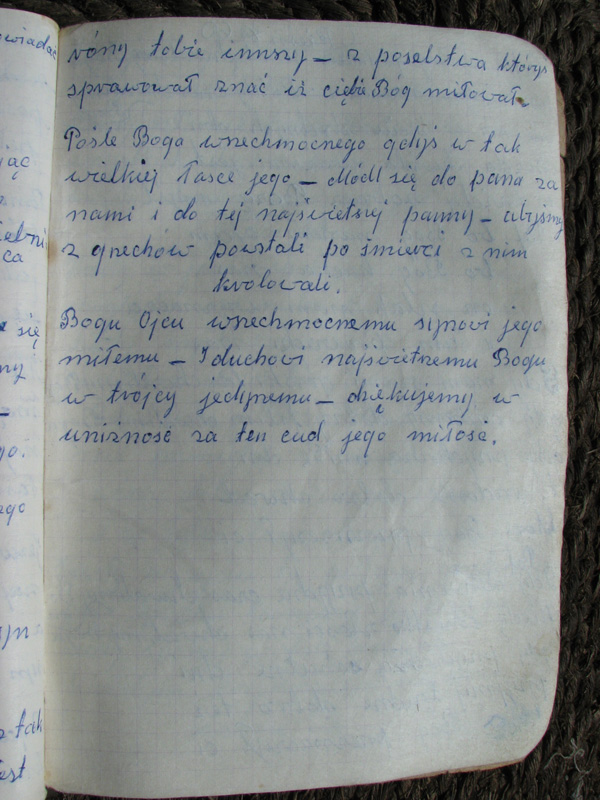 róny tobie innszy – z poselstwa któryś
sprawował znać iż ciębie Bóg miłował.
Pośle Boga wszechmocnego gdijś w tak
wielkiej łasce jego – Módl się do pana za
nami i do tej najświetszej panny – abyśmy
z grzechów powstali po śmierci z nim
królowali.
Bogu Ojcu wszechmocnemu synowi jego
miłemu – I duchowi najświetrzemu Bogu
w trójcy jedynemu – dziękujemy w
uniżność za ten cud jego miłość.
owiadać
jąc
ca
się
ny
go.
ego
tak